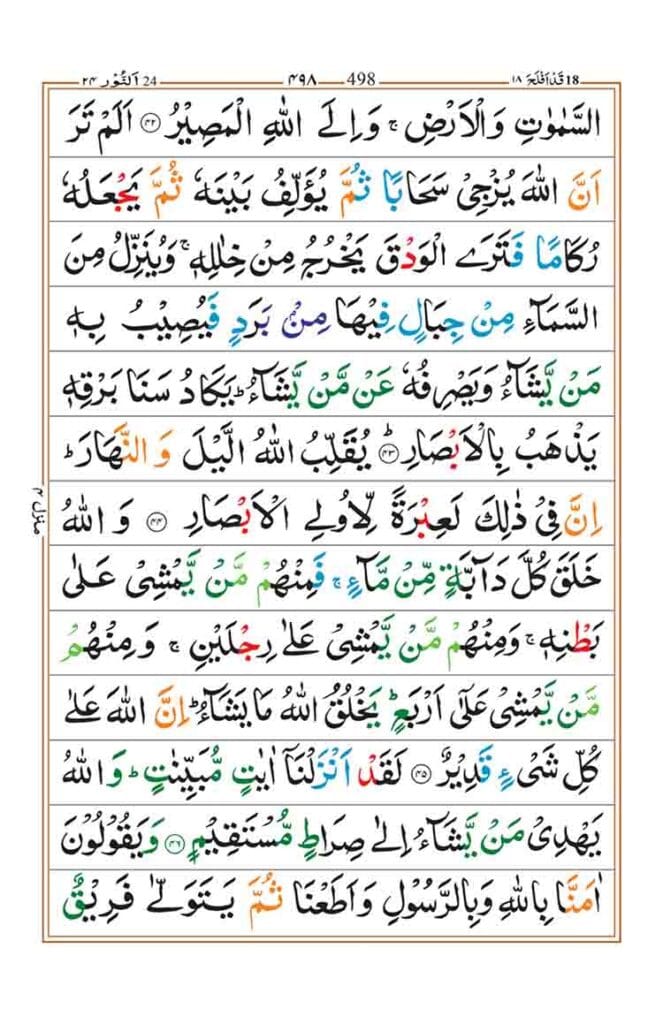 18 قَدْ اَفْلَحَ ١٨
498 ٤٩٨
24 اَلنُّوْر ٢٤
السَّمٰوٰتِ وَالْاَرْضِ ۚ وَاِلَی اللّٰهِ الْمَصِیْرُ ﴿۴۲﴾ اَلَمْ تَرَ
اَنَّ اللّٰهَ یُزْجِیْ سَحَابًا ثُمَّ یُؤَلِّفُ بَیْنَهٗ ثُمَّ یَجْعَلُهٗ
رُكَامًا فَتَرَی الْوَدْقَ یَخْرُجُ مِنْ خِلٰلِهٖ ۚ وَیُنَزِّلُ مِنَ
السَّمَآءِ مِنْ جِبَالٍ فِیْهَا مِنْۢ بَرَدٍ فَیُصِیْبُ بِهٖ
مَنْ یَّشَآءُ وَیَصْرِفُهٗ عَنْ مَّنْ یَّشَآءُ ؕ یَكَادُ سَنَا بَرْقِهٖ
یَذْهَبُ بِالْاَبْصَارِ ﴿ؕ۴۳﴾ یُقَلِّبُ اللّٰهُ الَّیْلَ وَ النَّهَارَ ؕ
اِنَّ فِیْ ذٰلِكَ لَعِبْرَةً لِّاُولِی الْاَبْصَارِ ﴿۴۴﴾ وَ اللّٰهُ
خَلَقَ كُلَّ دَآبَّةٍ مِّنْ مَّآءٍ ۚ فَمِنْهُمْ مَّنْ یَّمْشِیْ عَلٰی
بَطْنِهٖ ۚ وَمِنْهُمْ مَّنْ یَّمْشِیْ عَلٰی رِجْلَیْنِ ۚ وَ مِنْهُمْ
مَّنْ یَّمْشِیْ عَلٰۤی اَرْبَعٍ ؕ یَخْلُقُ اللّٰهُ مَا یَشَآءُ ؕ اِنَّ اللّٰهَ عَلٰی
كُلِّ شَیْءٍ قَدِیْرٌ ﴿۴۵﴾ لَقَدْ اَنْزَلْنَاۤ اٰیٰتٍ مُّبَیِّنٰتٍ ؕ وَ اللّٰهُ
یَهْدِیْ مَنْ یَّشَآءُ اِلٰی صِرَاطٍ مُّسْتَقِیْمٍ ﴿۴۶﴾ وَیَقُوْلُوْنَ
اٰمَنَّا بِاللّٰهِ وَبِالرَّسُوْلِ وَاَطَعْنَا ثُمَّ یَتَوَلّٰی فَرِیْقٌ
منزل ۴